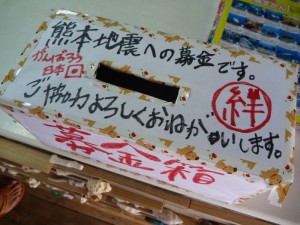 熊本地震への募金です。
がんばろう
日本
ご協力よろしくおねがいします。
絆
募金箱